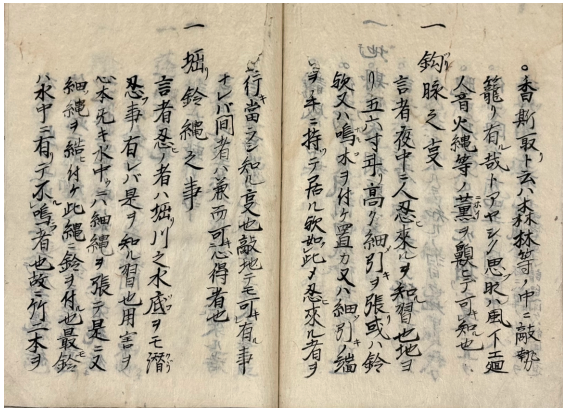 。香斯取ト云ハ森林等ノ中ニ敵軍
籠リ有ル哉トアヤシク思時ハ風下エ廻リ
人音火縄等ノ薫ヲ齅モテ可知也
一 鈎豚之㕝
言者夜中ニ人忍來ルヲ知習也地ヨ
リ五六寸斗リ高ク細引ヲ張或ハ鈴
欤又ハ鳴木ヲ付ケ置カ又ハ細引ノ端
ヲ手ニ持テ居ル欤如此〆忍來ル者ヲ
。行當ラシ知ル㕝也敵地テモ可キ有ル事
ナレバ間者ハ兼而可心得者也
一 堀リ鈴縄之事
言者忍ノ者ハ堀リ川之水底ヲモ潜リ
忍フ事有レバ是ヲ知ル習也用言ヲ
心本先キ水中ニハ細縄ヲ張テ是ニ又
細縄ヲ結ヒ付ケ此縄ニ鈴ヲ付ル也最モ鈴
ハ水中ニ有リテ不鳴ラ者也故ニ竹二本ヲ